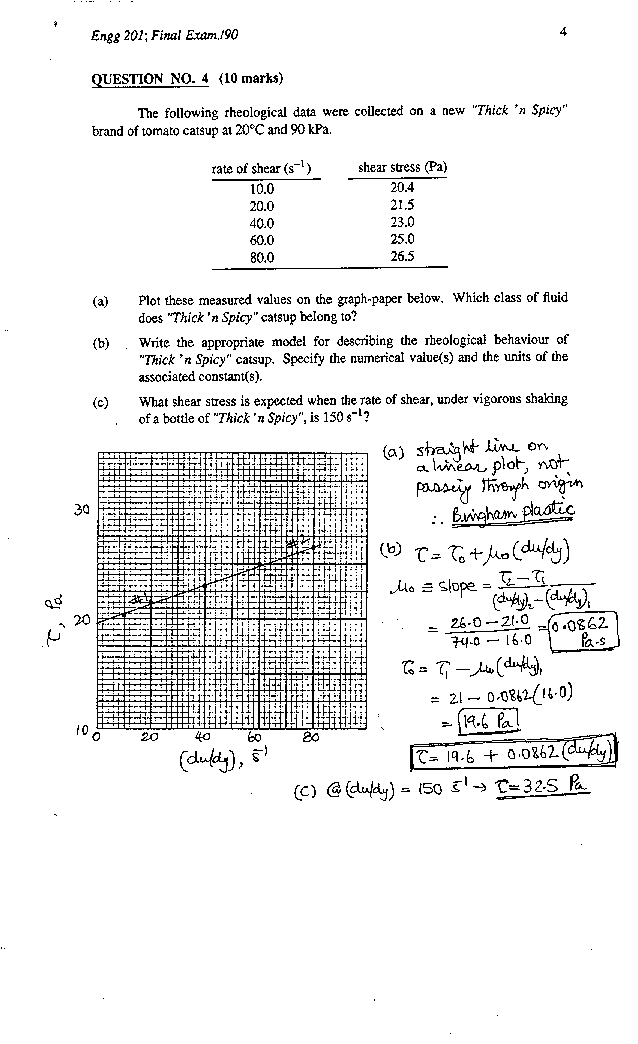 Engg 201; Final Exam./90
4
QUESTION NO. 4 (10 marks)
The following rheological data were collected on a new "Thick 'n Spicy"
brand of tomato catsup at 20°C and 90 kPa.
rate of shear (s⁻¹) shear stress (Pa)
10.0 20.4
20.0 21.5
40.0 23.0
60.0 25.0
80.0 26.5
(a) Plot these measured values on the graph-paper below. Which class of fluid
does "Thick 'n Spicy" catsup belong to?
(b) Write the appropriate model for describing the rheological behaviour of
"Thick 'n Spicy" catsup. Specify the numerical value(s) and the units of the
associated constant(s).
(c) What shear stress is expected when the rate of shear, under vigorous shaking
of a bottle of "Thick 'n Spicy", is 150 s⁻¹?
30
20
10
τ, Pa
#1
#2
0 20 40 60 80
(du/dy), s⁻¹
(a) straight line on
a linear plot, not
passing through origin
∴ Bingham plastic
(b) τ = τ₀ + μ₀ (du/dy)
μ₀ ≡ slope = τ₂ − τ₁ / (du/dy)₂ − (du/dy)₁
= 26.0 − 21.0 / 74.0 − 16.0 = 0.0862 Pa·s
τ₀ = τ₁ − μ₀ (du/dy)₁
= 21 − 0.0862 (16.0)
= 19.6 Pa
τ = 19.6 + 0.0862 (du/dy)
(c) @ (du/dy) = 150 s⁻¹ → τ = 32.5 Pa